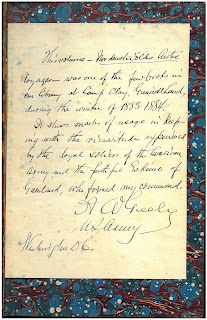 This volume - Nordenskiold's Arctic
Voyages - was one of the few books in
our library at Camp Clay, Grinnell Land,
during the winter of 1883-1884.
It shows marks of usage in keep-
ing with the vicissitudes experienced
by the loyal soldiers of the American
Army and the faithful Eskimo of
Greenland, who formed my command.
A W Greely
U.S. Army
Washington D.C.